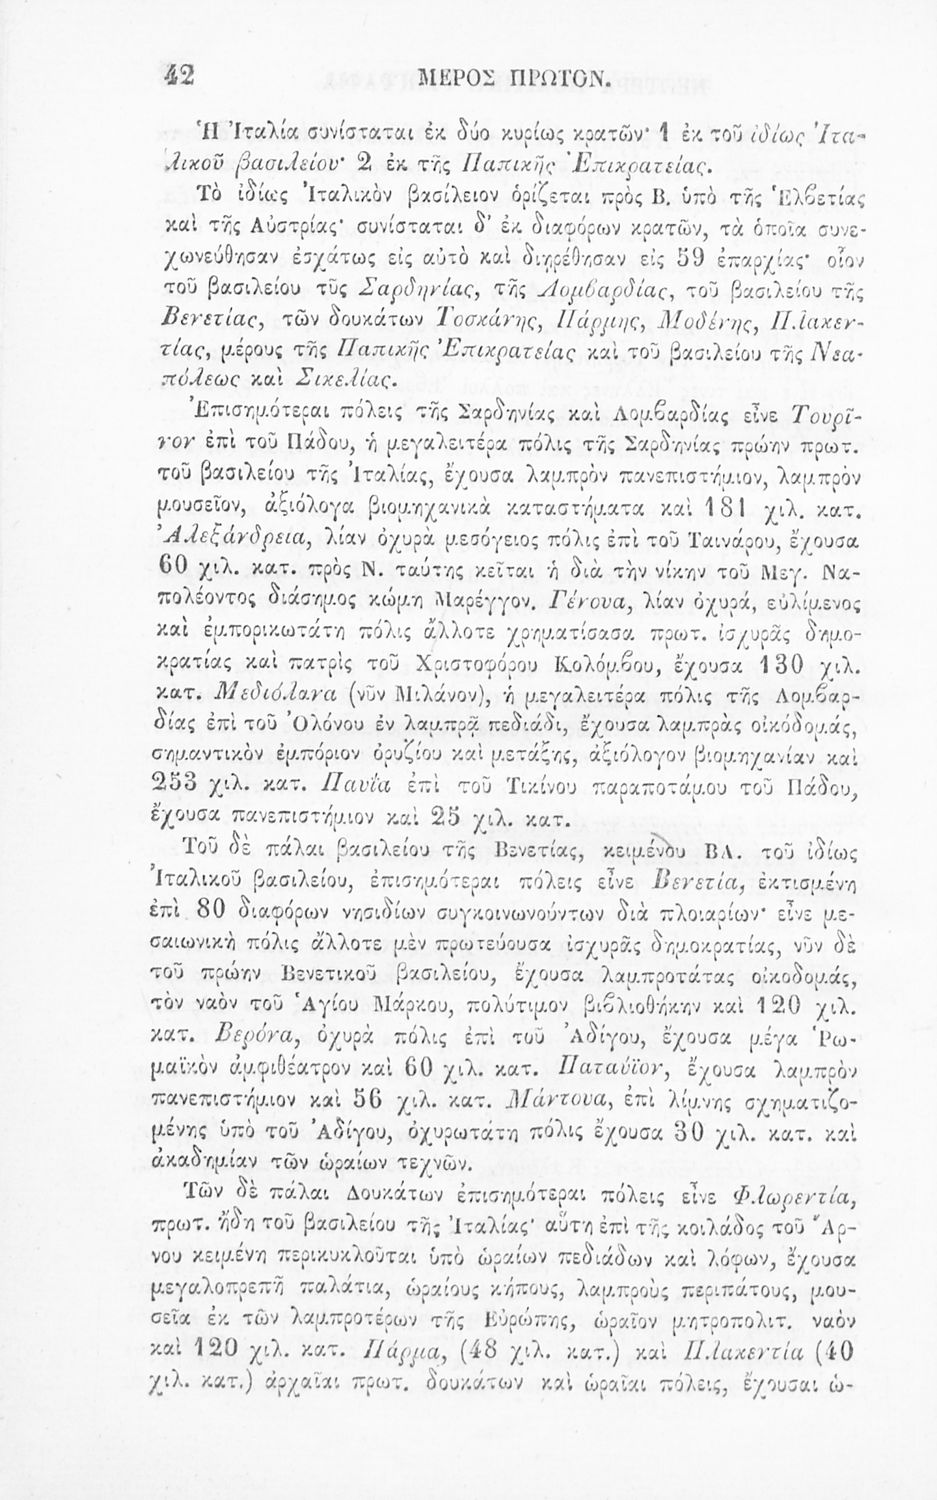 42 ΜΕΡΟΣ ΠΡΩΤΟΝ.
Ἡ Ἰταλία συνίσταται ἐκ δύο κυρίως κρατῶν· 1 ἐκ τοῦ ἰδίως Ἰτα-
λικοῦ βασιλείου· 2 ἐκ τῆς Παπικῆς Ἐπικρατείας.
Τὸ ἰδίως Ἰταλικὸν βασίλειον ὁρίζεται πρὸς Β. ὑπὸ τῆς Ἑλβετίας
καὶ τῆς Αὐστρίας· συνίσταται δ' ἐκ διαφόρων κρατῶν, τὰ ὁποῖα συνε-
χωνεύθησαν ἐσχάτως εἰς αὐτὸ καὶ διῃρέθησαν εἰς 59 ἐπαρχίας· οἷον
τοῦ βασιλείου τῦς Σαρδηνίας, τῆς Λομβαρδίας, τοῦ βασιλείου τῆς
Βενετίας, τῶν δουκάτων Τοσκάνης, Πάρμης, Μοδένης, Πλακεν-
τίας, μέρους τῆς Παπικῆς Ἐπικρατείας καὶ τοῦ βασιλείου τῆς Νεα-
πόλεως καὶ Σικελίας.
Ἐπισημότεραι πόλεις τῆς Σαρδηνίας καὶ Λομβαρδίας εἶνε Τουρῖ-
νον ἐπὶ τοῦ Πάδου, ἡ μεγαλειτέρα πόλις τῆς Σαρδηνίας πρώην πρωτ.
τοῦ βασιλείου τῆς Ἰταλίας, ἔχουσα λαμπρὸν πανεπιστήμιον, λαμπρὸν
μουσεῖον, ἀξιόλογα βιομηχανικὰ καταστήματα καὶ 181 χιλ. κατ.
Ἀλεξάνδρεια, λίαν ὀχυρὰ μεσόγειος πόλις ἐπὶ τοῦ Ταινάρου, ἔχουσα
60 χιλ. κατ. πρὸς Ν. ταύτης κεῖται ἡ διὰ τὴν νίκην τοῦ Μεγ. Να-
πολέοντος διάσημος κώμη Μαρέγγον. Γένουα, λίαν ὀχυρά, εὐλίμενος
καὶ ἐμπορικωτάτη πόλις ἄλλοτε χρηματίσασα πρωτ. ἰσχυρᾶς δημο-
κρατίας καὶ πατρὶς τοῦ Χριστοφόρου Κολόμβου, ἔχουσα 130 χιλ.
κατ. Μεδιόλανα (νῦν Μιλάνον), ἡ μεγαλειτέρα πόλις τῆς Λομβαρ-
δίας ἐπὶ τοῦ Ὀλόνου ἐν λαμπρᾷ πεδιάδι, ἔχουσα λαμπρὰς οἰκόδομάς,
σημαντικὸν ἐμπόριον ὀρυζίου καὶ μετάξης, ἀξιόλογον βιομηχανίαν καὶ
253 χιλ. κατ. Παυΐα ἐπὶ τοῦ Τικίνου παραποτάμου τοῦ Πάδου,
ἔχουσα πανεπιστήμιον καὶ 25 χιλ. κατ.
Τοῦ δὲ πάλαι βασιλείου τῆς Βενετίας, κειμένου ΒΑ. τοῦ ἰδίως
Ἰταλικοῦ βασιλείου, ἐπισημότεραι πόλεις εἶνε Βενετία, ἐκτισμένη
ἐπὶ 80 διαφόρων νησιδίων συγκοινωνούντων διὰ πλοιαρίων· εἶνε με-
σαιωνικὴ πόλις ἄλλοτε μὲν πρωτεύουσα ἰσχυρᾶς δημοκρατίας, νῦν δὲ
τοῦ πρώην Βενετικοῦ βασιλείου, ἔχουσα λαμπροτάτας οἰκοδομάς,
τὸν ναὸν τοῦ Ἁγίου Μάρκου, πολύτιμον βιβλιοθήκην καὶ 120 χιλ.
κατ. Βερόνα, ὀχυρὰ πόλις ἐπὶ τοῦ Ἀδίγου, ἔχουσα μέγα Ῥω-
μαϊκὸν ἀμφιθέατρον καὶ 60 χιλ. κατ. Παταύϊον, ἔχουσα λαμπρὸν
πανεπιστήμιον καὶ 56 χιλ. κατ. Μάντουα, ἐπὶ λίμνης σχηματιζο-
μένης ὑπὸ τοῦ Ἀδίγου, ὀχυρωτάτη πόλις ἔχουσα 30 χιλ. κατ. καὶ
ἀκαδημίαν τῶν ὡραίων τεχνῶν.
Τῶν δὲ πάλαι Δουκάτων ἐπισημότεραι πόλεις εἶνε Φλωρεντία,
πρωτ. ἤδη τοῦ βασιλείου τῆς Ἰταλίας· αὕτη ἐπὶ τῆς κοιλάδος τοῦ Ἄρ-
νου κειμένη περικυκλοῦται ὑπὸ ὡραίων πεδιάδων καὶ λόφων, ἔχουσα
μεγαλοπρεπῆ παλάτια, ὡραίους κήπους, λαμπροὺς περιπάτους, μου-
σεῖα ἐκ τῶν λαμπροτέρων τῆς Εὐρώπης, ὡραῖον μητροπολιτ. ναὸν
καὶ 120 χιλ. κατ. Πάρμα, (48 χιλ. κατ.) καὶ Πλακεντία (40
χιλ. κατ.) ἀρχαῖαι πρωτ. δουκάτων καὶ ὡραῖαι πόλεις, ἔχουσαι ὡ-